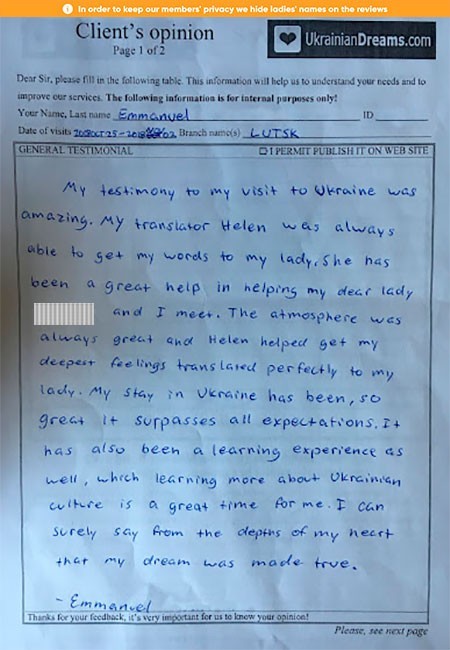 In order to keep our members' privacy we hide ladies' names on the reviews
Client's opinion
Page 1 of 2
UkrainianDreams.com
Dear Sir, please fill in the following table. This information will help us to understand your needs and to
improve our services. The following information is for internal purposes only!
Your Name, Last name Emmanuel ID
Date of visits Branch name(s) LUTSK
GENERAL TESTIMONIAL I PERMIT PUBLISH IT ON WEB SITE
My testimony to my visit to Ukraine was
amazing. My translator Helen was always
able to get my words to my lady. She has
been a great help in helping my dear lady
and I meet. The atmosphere was
always great and Helen helped get my
deepest feelings translated perfectly to my
lady. My stay in Ukraine has been, so
great it surpasses all expectations. It
has also been a learning experience as
well, which learning more about Ukrainian
culture is a great time for me. I can
surely say from the depths of my heart
that my dream was made true.
- Emmanuel
Thanks for your feedback, it's very important for us to know your opinion!
Please, see next page